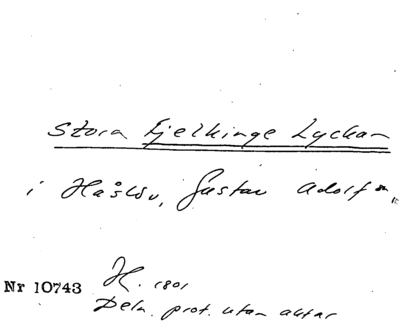 Stora Fjelkinge Lyckan
i Håslöv, Gustav Adolf
Nr 10743 H. 1801
Deln. prot. utan aktar